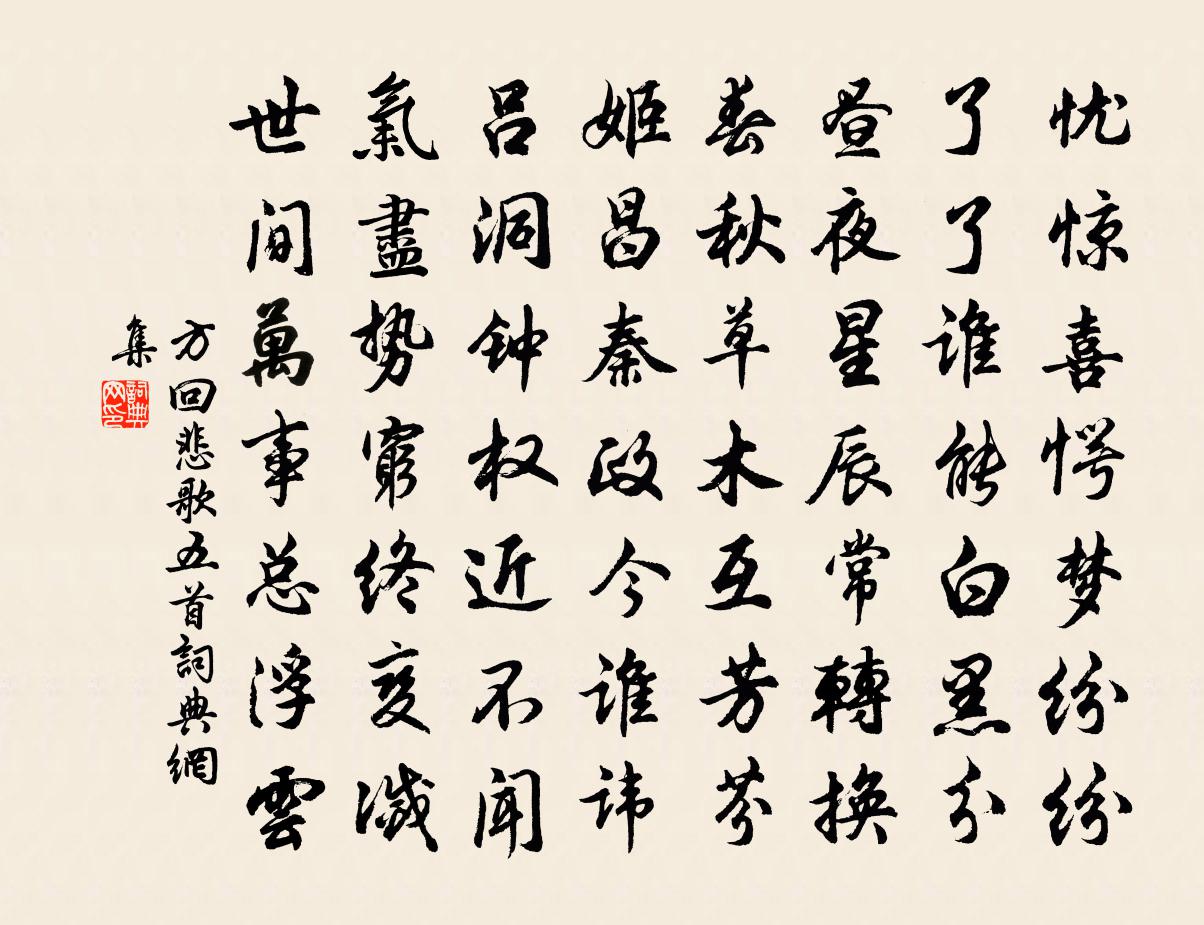 忧惊喜愕梦纷纷
了了谁能白黑分
昼夜星辰常轉换
春秋草木互芳芬
姬昌秦政今谁讳
吕洞钟权近不闻
氣盡势窮终变灭
世间萬事总浮雲
方回悲歌五首詞典網
集
詞典网印